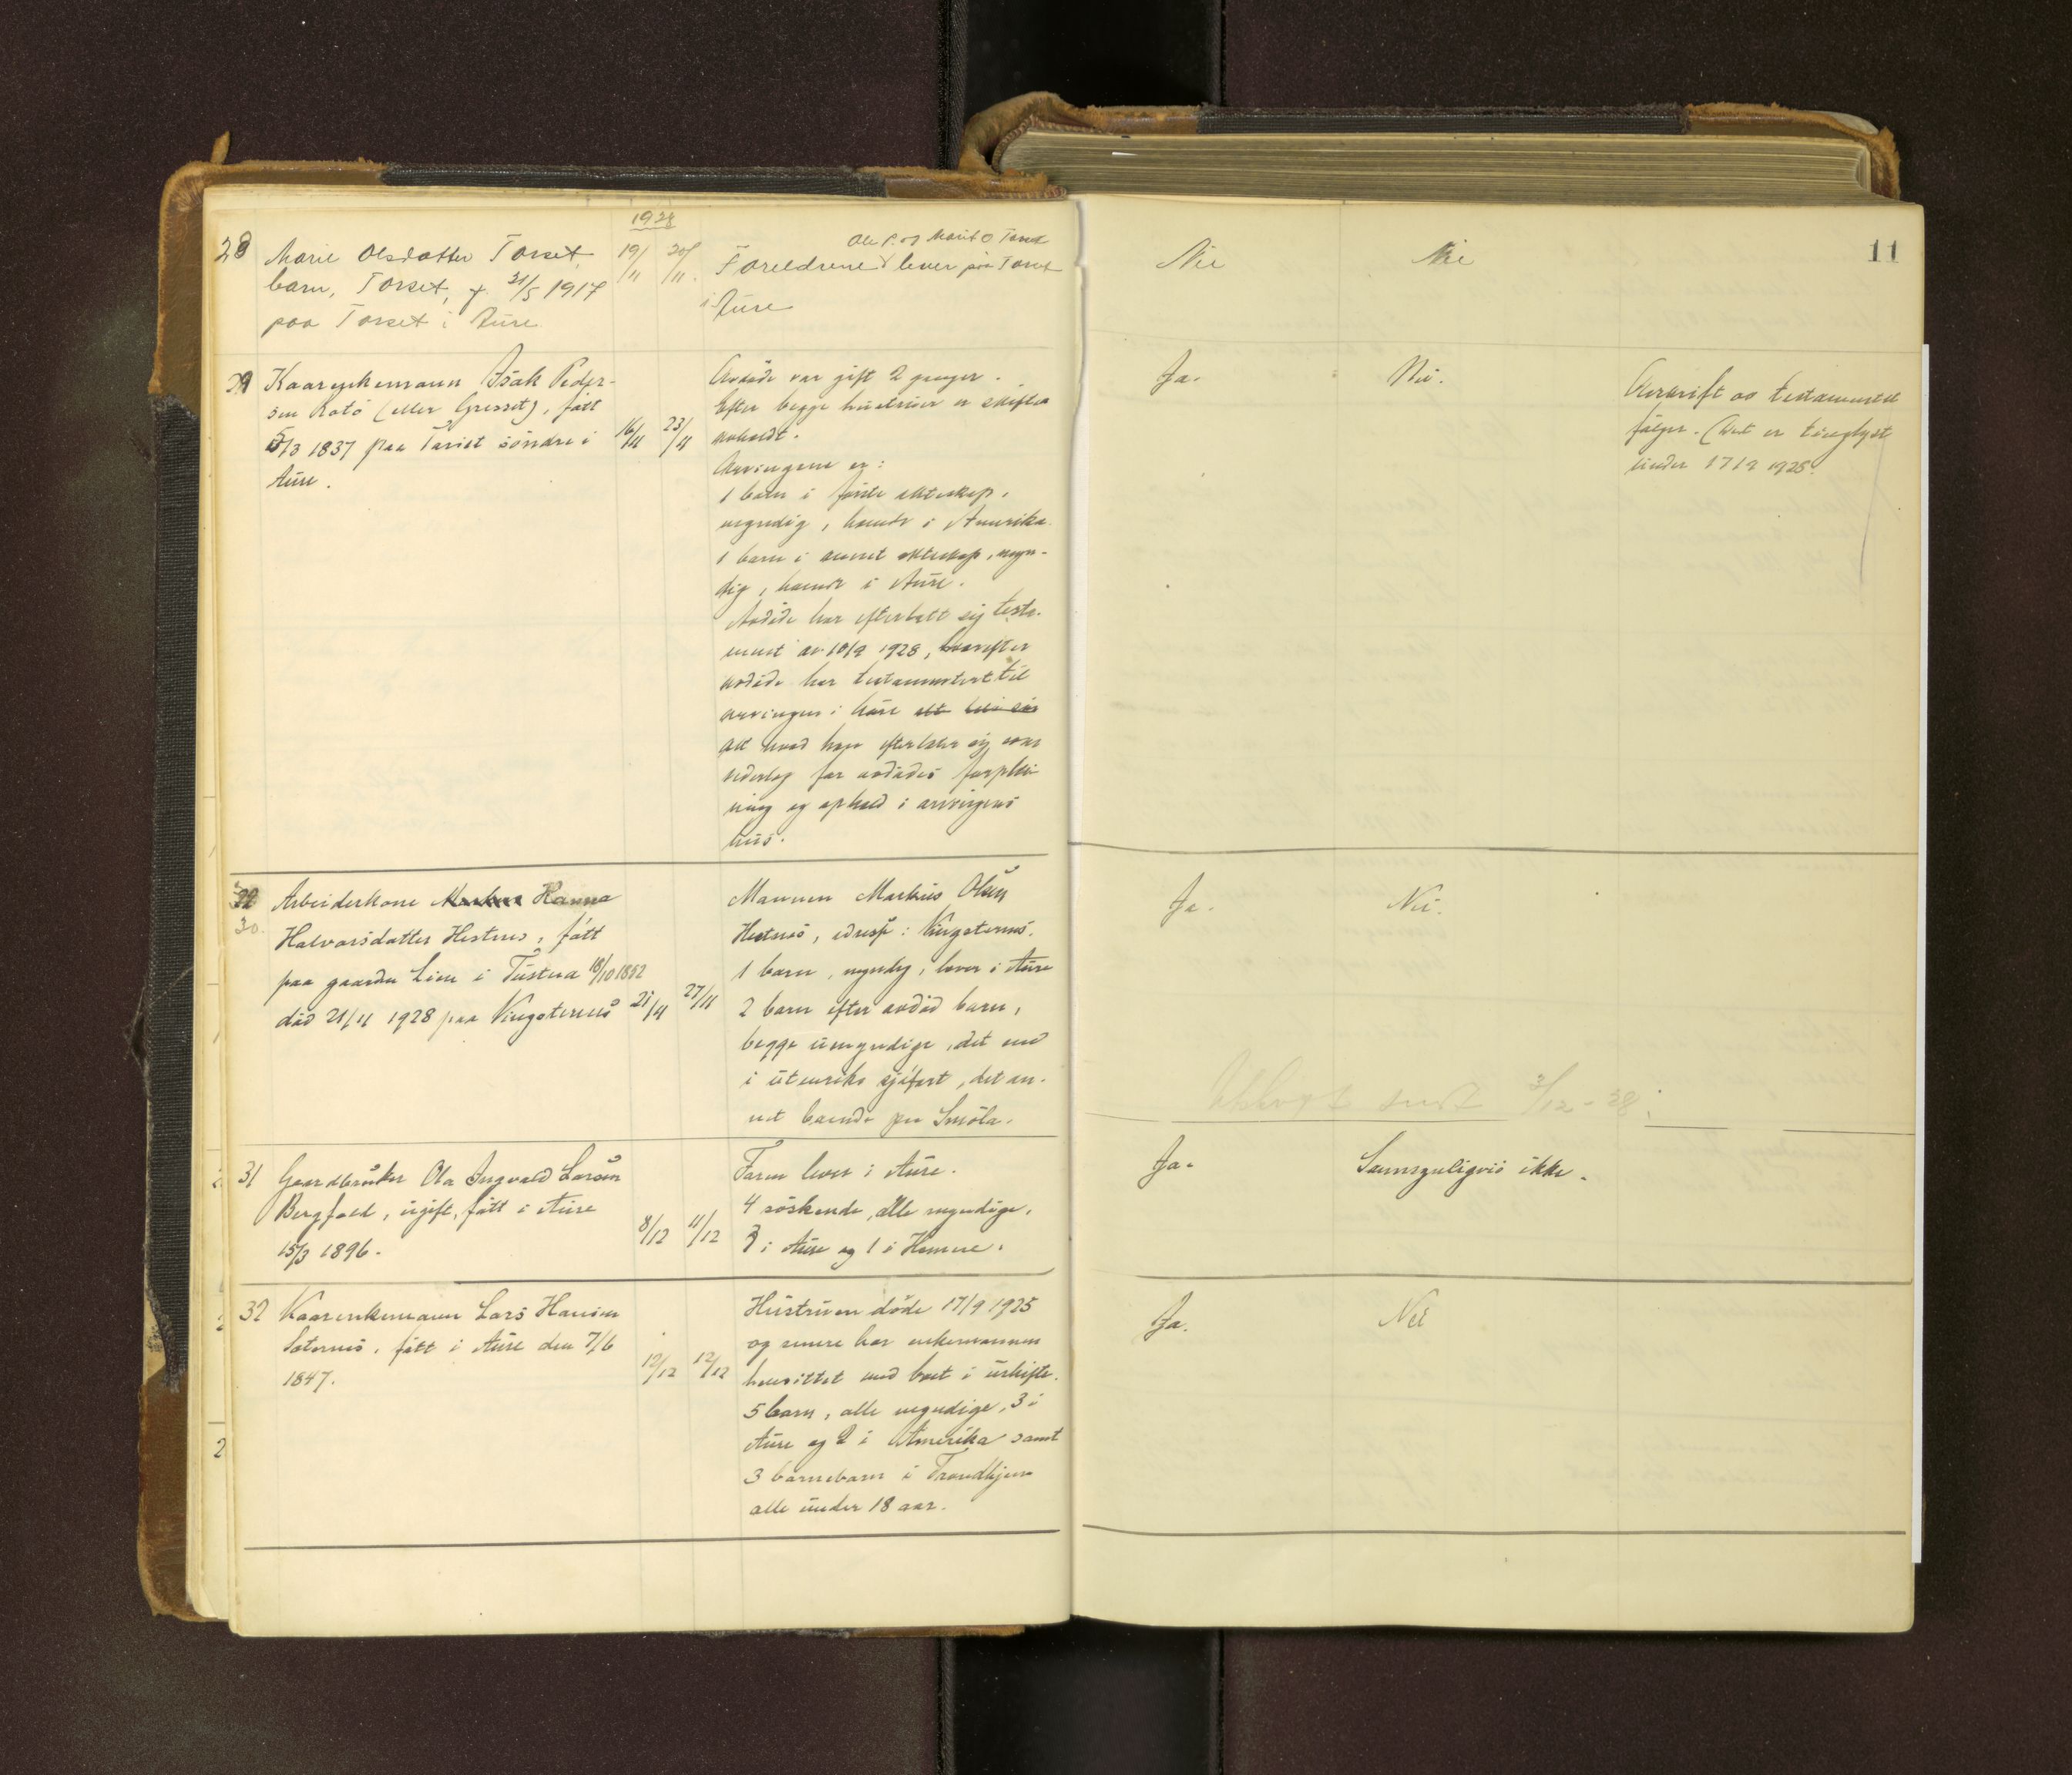 1928
11
28 Marie Olsdatter Torset,
barn, Torset, f. 21/5 1917
paa Torset i Aure
19/11 20/11
Ole P. og Marit O Torset
Foreldrene lever paa Torset
i Aure
Nei Nei
29 Kaarenkemann Isak Peder-
sen Rotø (eller Gresset), fött
5/3 1837 paa Torset söndre i
Aure.
16/11 23/11
Avdöde var gift 2 ganger.
Efter begge hustruer er skifte
avholdt.
Arvingene er:
1 barn i förste ekteskap,
myndig, bauende i Amerika.
1 barn i annet ekteskap, myn-
dig, bauende i Aure.
Avdöde har efterlatt sig testa-
ment av 10/9 1928, hvorefter
avdöde har testamentert til
arvingen i Aure
alt hvad han efterlater sig som
vederlag for avdödes forplei-
ning og ophold i arvingens
hus.
Ja. Nei.
Avskrift av testamentet
fölger. (Det er tinglyst
under 17/9 1925.
30. Arbeiderkone Hanna
Halvorsdatter Hestnes, fött
paa gaarden Lien i Tustna 18/10 1852
död 21/11 1928 paa Vingsternes
21/11 27/11
Mannen Markus Olsen
Hestnes, adresse: Vingsternes.
1 barn, myndig, lever i Aure
2 barn efter avdöd barn,
begge umyndige, det ene
i utenriks sjöfart, det an-
net boende paa Smöla.
Ja. Nei.
sendt 3/12-28.
31 Gaardbruker Ola Ingvald Larsen
Bergfald, ugift, fött i Aure
15/3 1896.
8/12 11/12
Faren lever i Aure.
4 söskende, alle myndige,
3 i Aure og 1 i Hemne.
Ja. Sannsynligvis ikke.
32 Kaarenkemann Lars Hansen
Saternes, fött i Aure den 7/6
1847.
12/12 12/12
Hustruen döde 17/9 1925
og senere har enkemannen
hensittet med boet i uskifte.
5 barn, alle myndige, 3 i
Aure og 2 i Amerika samt
3 barnebarn i Trondhjem
alle under 18 aar.
Ja. Nei